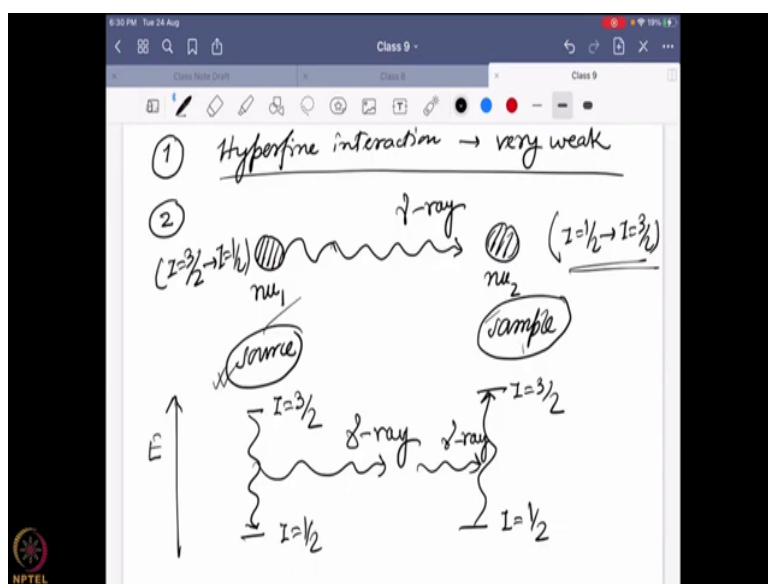 6:30 PM Tue 24 Aug
19%
Class 9
Class Note Draft
Class 8
Class 9
① Hyperfine interaction → very weak
②
γ-ray
(I=3/2→I=1/2)
(I=1/2→I=3/2)
nu₁
nu₂
source
sample
I=3/2
I=3/2
E
γ-ray
γ-ray
I=1/2
I=1/2
NPTEL